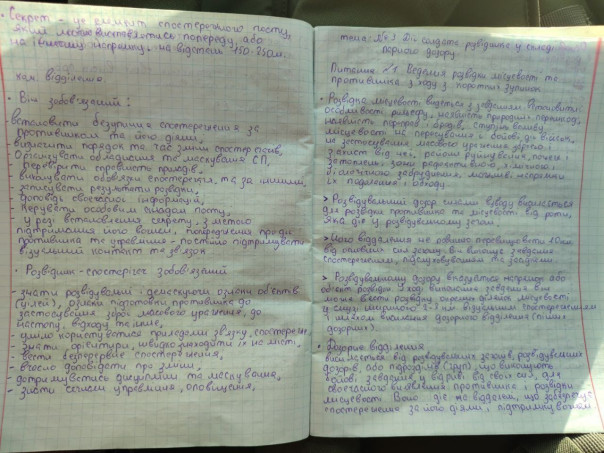 Секрет - це елемент спостережного посту,
який може виставлятись попереду, або
на іншому напрямку на відстані 150-250м.
ком. відділення
• Він зобов'язаний:
встановити безупинне спостереження за
противником та його діями
визначити порядок та час зміни спостерігачів,
Організувати обладнання та маскування СП,
перевірити справність приладів.
виконувати обов'язки спостерігача, та за іншими,
записувати результати розвідки,
• доповідь своєчасної інформації,
• керувати особовим складом посту.
у разі встановлення секрету, з метою
підтримання його вогнем, попередження про дії
противника та управління - постійно підтримувати
візуальний контакт та зв'язок
• Розвідник-спостерігач зобов'язаний
- знати розвідувальні і демаскуючі ознаки об'єктів
(цілей), ознаки підготовки противника до
застосування зброї масового ураження, до
наступу, відходу та інше,
- уміло користуватися приладами зв'язку, спостереж
- знати орієнтири, швидко знаходити їх на місц.
- вести безперервне спостереження,
- вчасно доповідати про зміни,
дотримуватись дисципліни та маскування,
- знати сигнали управління, оповіщення,
тема: №3 Дії солдата розвідника у складі
дозору
Питання №1. Ведення розвідки місцевості та
противника з ходу і з коротких зупинок
• Розвідка місцевості ведеться з
особливості рельєфу, наявність природніх перешкод,
наявність ступінь впливу
місцевості на пересування і бойові дії військ,
на застосування масового ураження зброї і
захист від неї,
затоплень, зони радіоактивного, хімічного і
біологічного забруднення, можливі напрямки
їх подолання і обходу
> Розвідувальний дозор силами взводу виділяється
для розвідки противника та місцевості від роти,
яка діє у розвідувальному загоні.
> Його віддалення не повинно перевищувати 10км
від основних сил загону, він виконує завдання
спостереженням, підслуховуванням та засідками.
> Розвідувальному дозору вказується напрямок або
об'єкт розвідки. У ході виконання завдання він
може вести розвідку окремих ділянок місцевості
у смузі шириною 2-3 км візуальним спостереженням
і шляхом висилання дозорного відділення (піших
дозорних)
• Дозорне відділення
висилається від розвідувальних загонів, розвідувальних
дозорів, або підрозділів (груп), що виконують
бойові завдання у відриві від своїх сил, для
своєчасного виявлення противника і розвідки
місцевості. Воно діє на віддаленні, що забезпечує
спостереження за його діями і підтримку вогнем